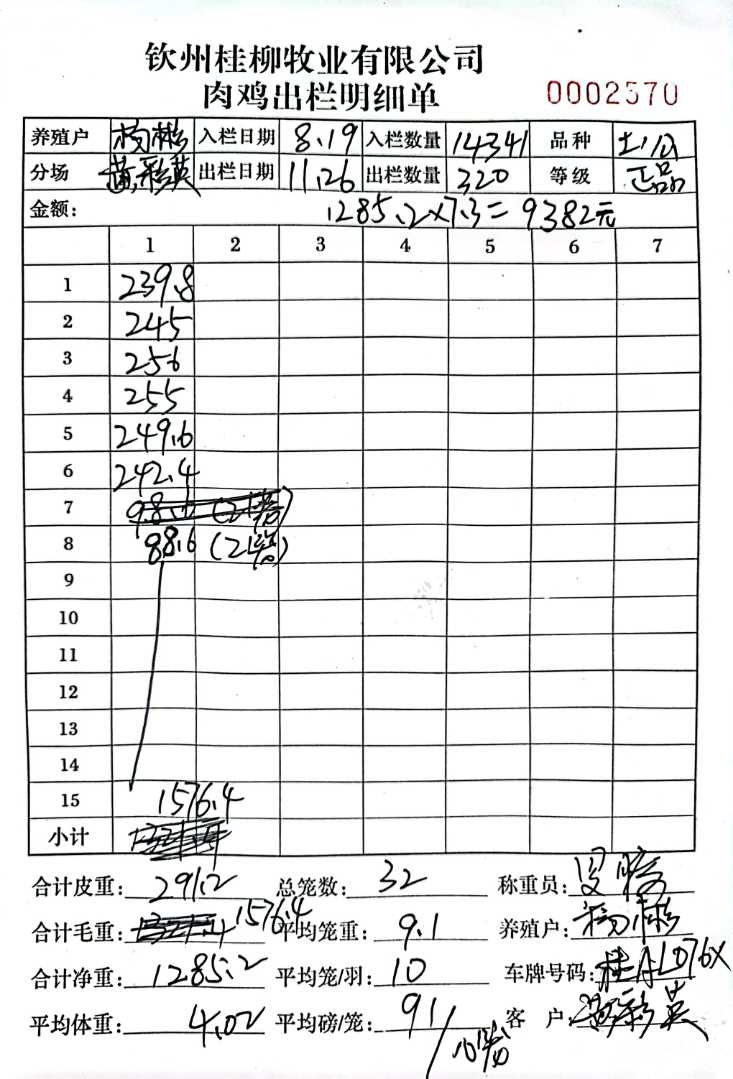 钦州桂柳牧业有限公司
肉鸡出栏明细单 0002570
养殖户 杨彬 入栏日期 8.19 入栏数量 14341 品种 土公
分场 黄彩英 出栏日期 11.26 出栏数量 320 等级 正品
金额: 1285.2×7.3=9382元
1 2 3 4 5 6 7
1 239.8
2 245
3 256
4 255
5 249.6
6 242.4
7
8 88.6 (21笼)
9
10
11
12
13
14
15 1576.4
小计
合计皮重: 291.2 总笼数: 32 称重员:
合计毛重: 1576.4 平均笼重: 9.1 养殖户: 杨彬
合计净重: 1285.2 平均笼/羽: 10 车牌号码: 桂AL076X
平均体重: 4.02 平均磅/笼: 91/ 客户: 黄彩英